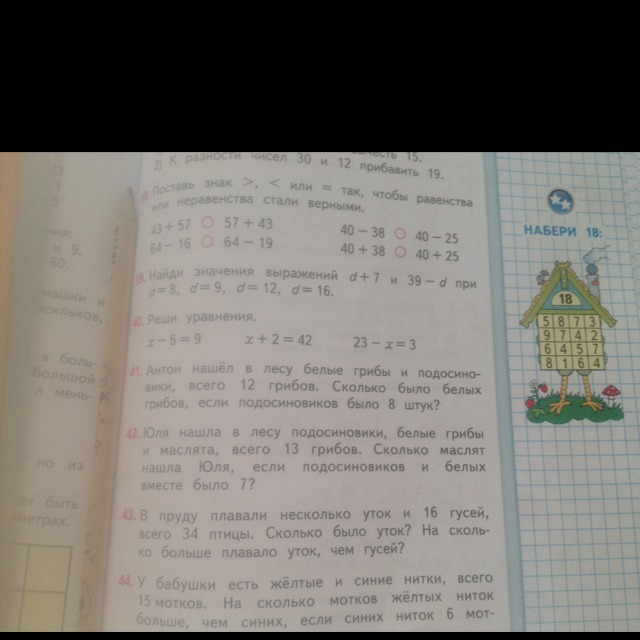 2) К разности чисел 30 и 12 прибавить 19.
Поставь знак >, < или = так, чтобы равенства
или неравенства стали верными.
43 + 57 ○ 57 + 43
40 − 38 ○ 40 − 25
64 − 16 ○ 64 − 19
40 + 38 ○ 40 + 25
39. Найди значения выражений d + 7 и 39 − d при
d = 8, d = 9, d = 12, d = 16.
40. Реши уравнения.
x − 6 = 9 x + 2 = 42 23 − x = 3
41. Антон нашёл в лесу белые грибы и подосино-
вики, всего 12 грибов. Сколько было белых
грибов, если подосиновиков было 8 штук?
42. Юля нашла в лесу подосиновики, белые грибы
и маслята, всего 13 грибов. Сколько маслят
нашла Юля, если подосиновиков и белых
вместе было 7?
43. В пруду плавали несколько уток и 16 гусей,
всего 34 птицы. Сколько было уток? На сколь-
ко больше плавало уток, чем гусей?
44. У бабушки есть жёлтые и синие нитки, всего
15 мотков. На сколько мотков жёлтых ниток
больше, чем синих, если синих ниток 6 мот-
НАБЕРИ 18:
18
5 8 7 3
9 7 4 2
6 4 5 7
8 1 6 4
и 9.
60.
в боль-
большой
л мень-
но из
быть
метрах.